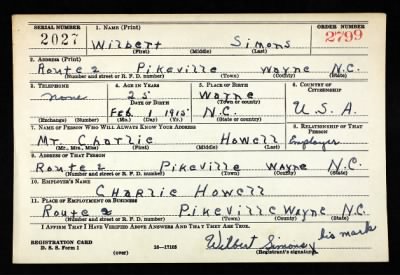 SERIAL NUMBER
1. NAME (Print)
ORDER NUMBER
2027
Wilbert Simons
2799
(First) (Middle) (Last)
2. ADDRESS (Print)
Route 2 Pikeville Wayne N.C.
(Number and street or R. F. D. number) (Town) (County) (State)
3. TELEPHONE
4. AGE IN YEARS
5. PLACE OF BIRTH
6. COUNTRY OF CITIZENSHIP
none
25
Wayne
DATE OF BIRTH
(Town or county)
Feb 1915
N.C.
U.S.A.
(Exchange) (Number)
(Mo.) (Day) (Yr.)
(State or country)
7. NAME OF PERSON WHO WILL ALWAYS KNOW YOUR ADDRESS
8. RELATIONSHIP OF THAT PERSON
Mr. Charlie Howell Employer
(Mr., Mrs., Miss) (First) (Middle) (Last)
9. ADDRESS OF THAT PERSON
Route 2 Pikeville Wayne N.C.
(Number and street or R. F. D. number) (Town) (County) (State)
10. EMPLOYER'S NAME
Charlie Howell
11. PLACE OF EMPLOYMENT OR BUSINESS
Route 2 Pikeville Wayne N.C.
(Number and street or R. F. D. number) (Town) (County) (State)
I AFFIRM THAT I HAVE VERIFIED ABOVE ANSWERS AND THAT THEY ARE TRUE.
REGISTRATION CARD
D. S. S. Form 1
(over)
16—17105
Wilbert Simons x his mark
(Registrant's signature)